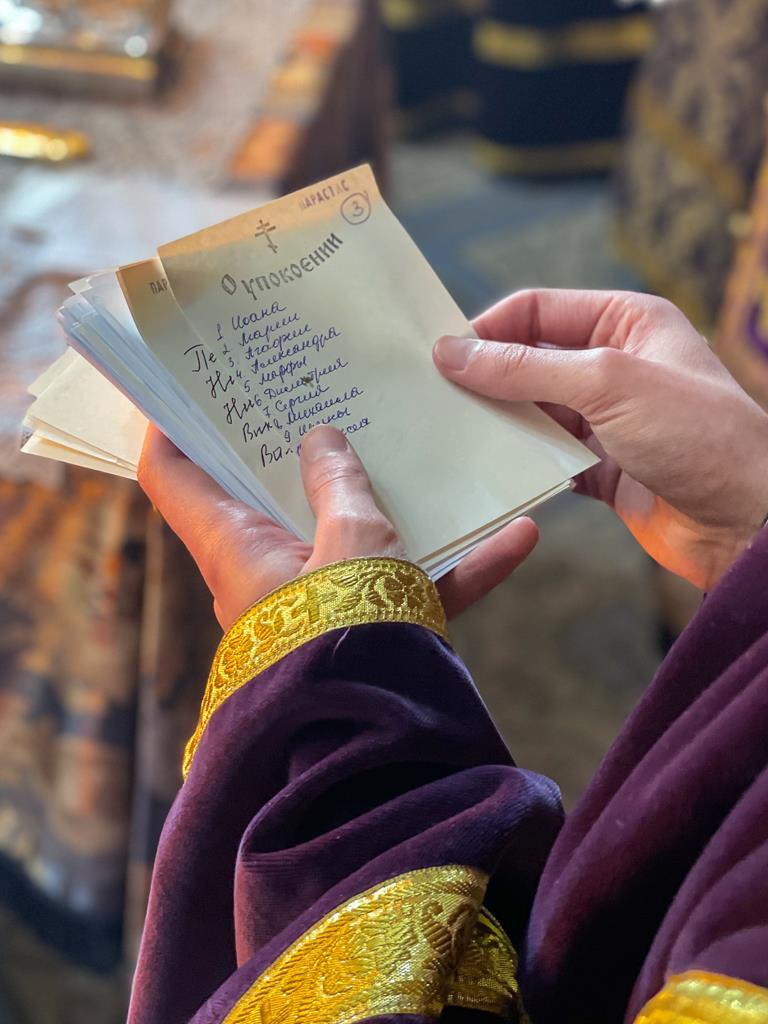 ПАРАСТАС
3
О УПОКОЕНИИ
1 Иоана
2 Марии
3 Агафии
4 Александра
5 Марфы
6 Димитрия
7 Сергия
8 Михаила
9 Иоаны
ПАР
Пе
Ни
Ни
Вик
Вал